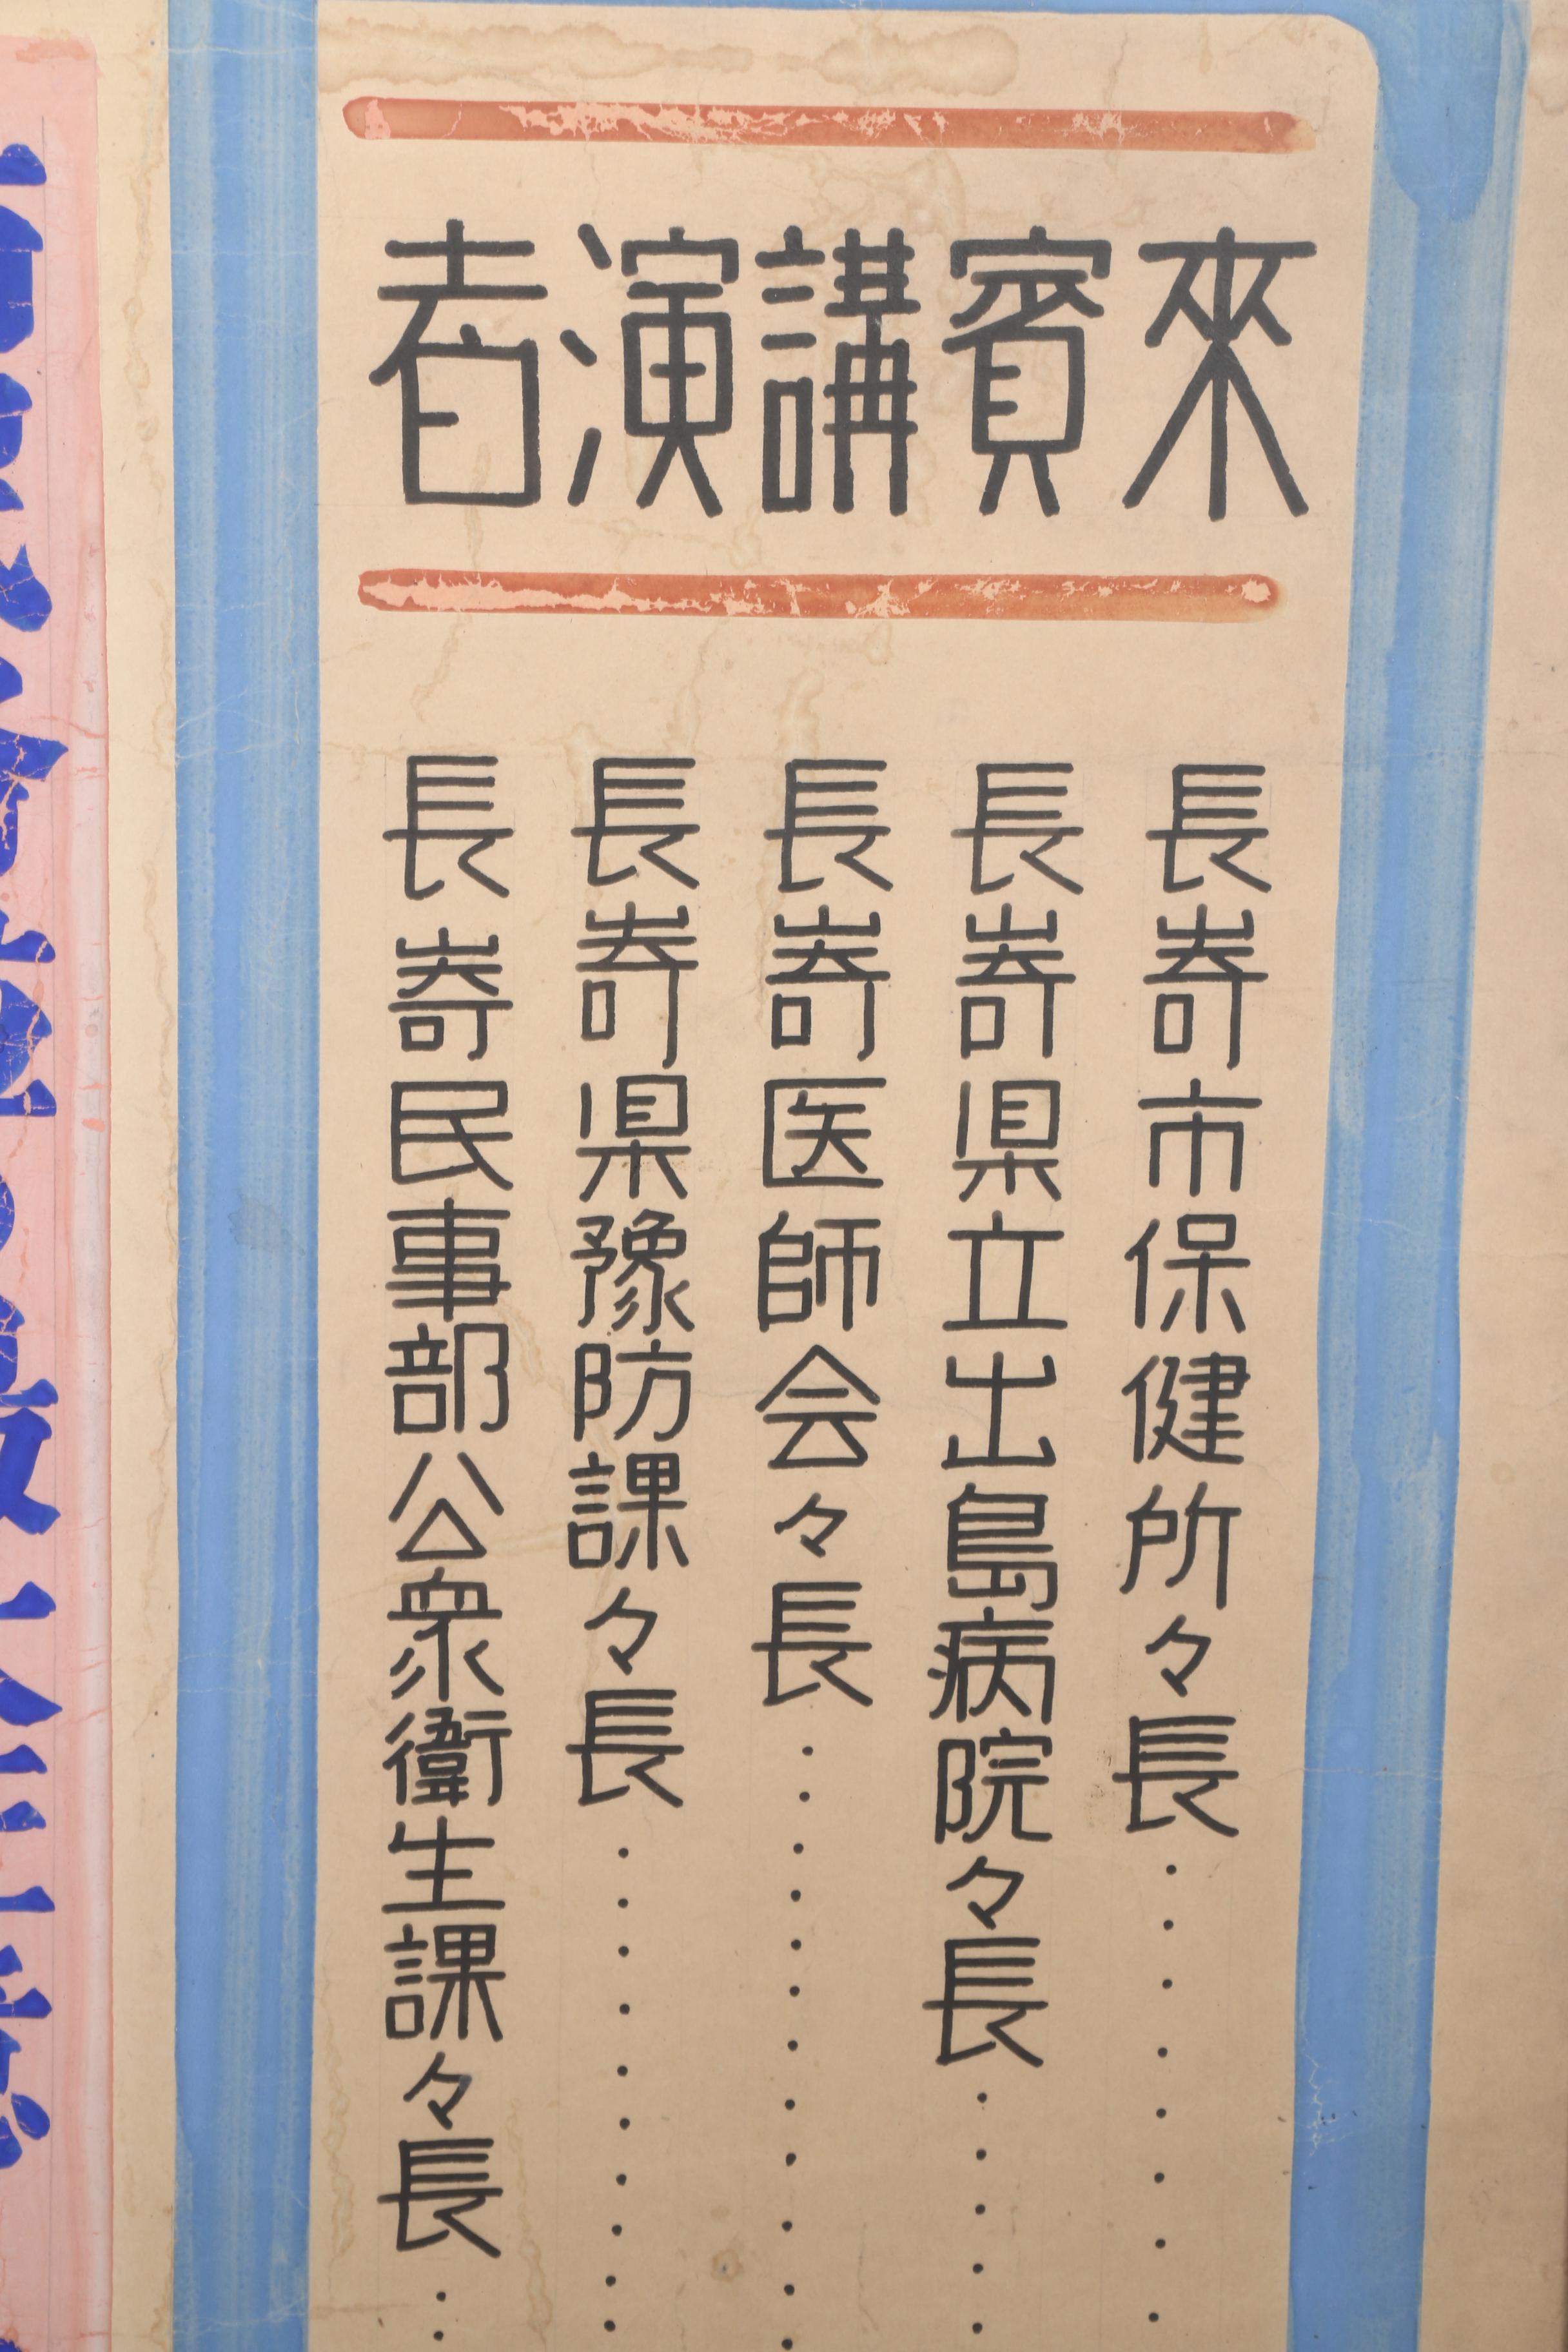 來賓講演者
長嵜市保健所々長…………
長嵜県立出島病院々長……
長嵜医師会々長…………
長嵜県豫防課々長…………
長嵜民事部公衆衛生課々長…